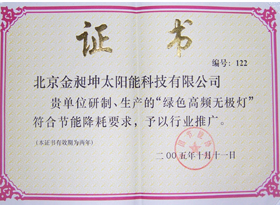 证书
编号：122
北京金昶坤太阳能科技有限公司
贵单位研制、生产的“绿色高频无极灯”
符合节能降耗要求，予以行业推广。
(本证书有效期为两年)
二00五年十月十一日